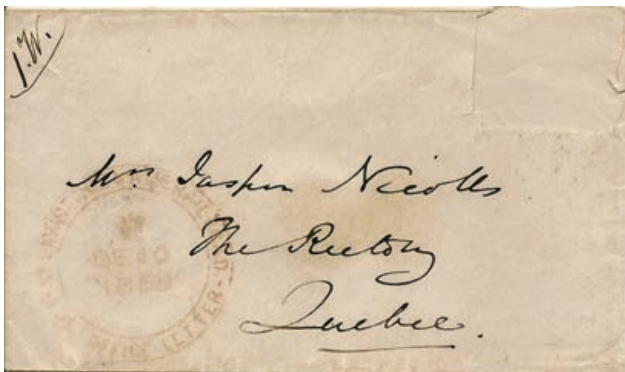 1.W.
Mrs Jasper Nicolls
The Rectory
Quebec.
LETTER